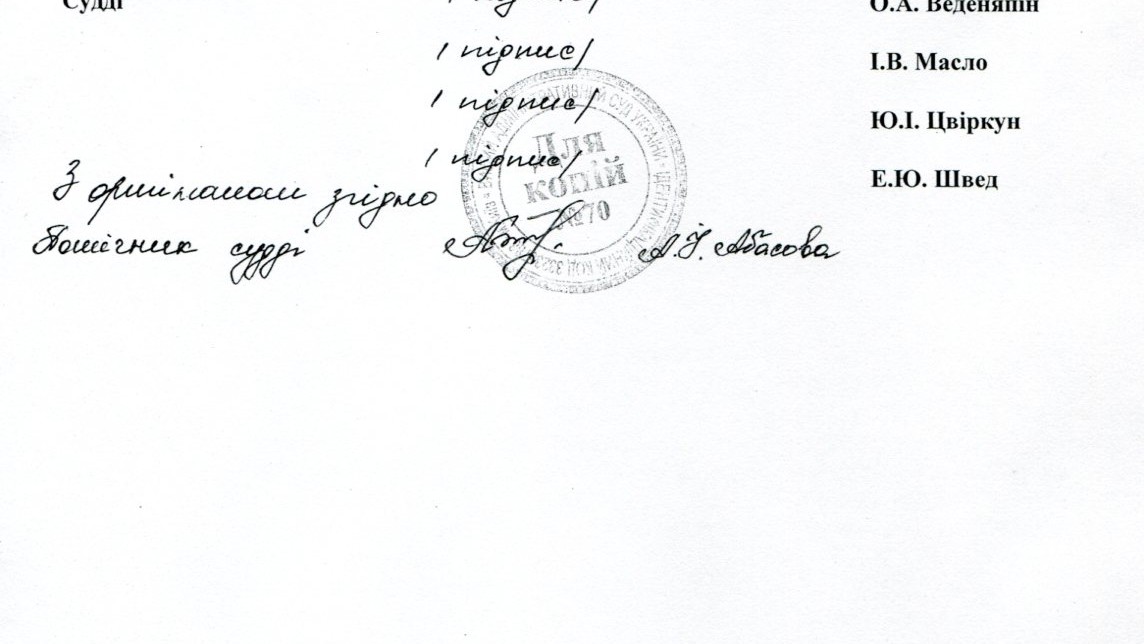 Судді О.А. Веденяпін
/ підпис / І.В. Масло
/ підпис / Ю.І. Цвіркун
/ підпис / Е.Ю. Швед
З оригіналом згідно
Помічник судді А.І. Абасова
АДМІНІСТРАТИВНИЙ СУД УКРАЇНИ
Для
копій
№70